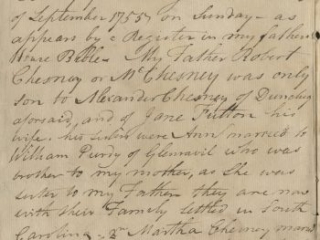 of September 1755 on Sunday - as
appears by a Register in my father's
House Bible - My Father Robert
Chesney or McChesney was only
son to Alexander Chesney of Dunclug
aforsaid, and of Jane Fulton his
wife. his sisters were Ann married to
William Purdy of Glenravil who was
brother to my mother, as she was
sister to my Father they are now
with their Family settled in South
Carolina - 2nd Martha Chesney marri